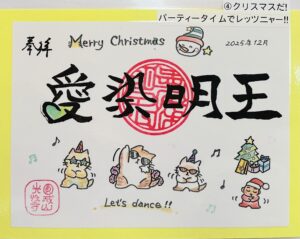 ④クリスマスだ!
パーティータイムでレッツニャー!!
奉拝
Merry Christmas
2025年12月
愛染明王
Let's dance!!